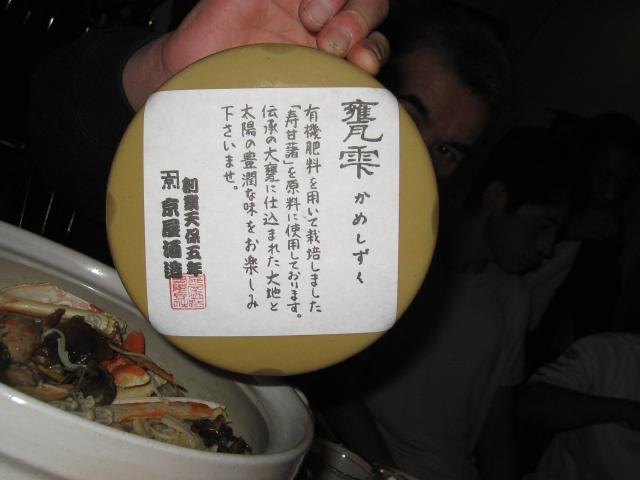 甕雫 かめしずく
有機肥料を用いて栽培しました
「寿甘藷」を原料に使用しております。
伝承の大甕に仕込まれた大地と
太陽の豊潤な味をお楽しみ
下さいませ。
創業天保五年
京屋酒造